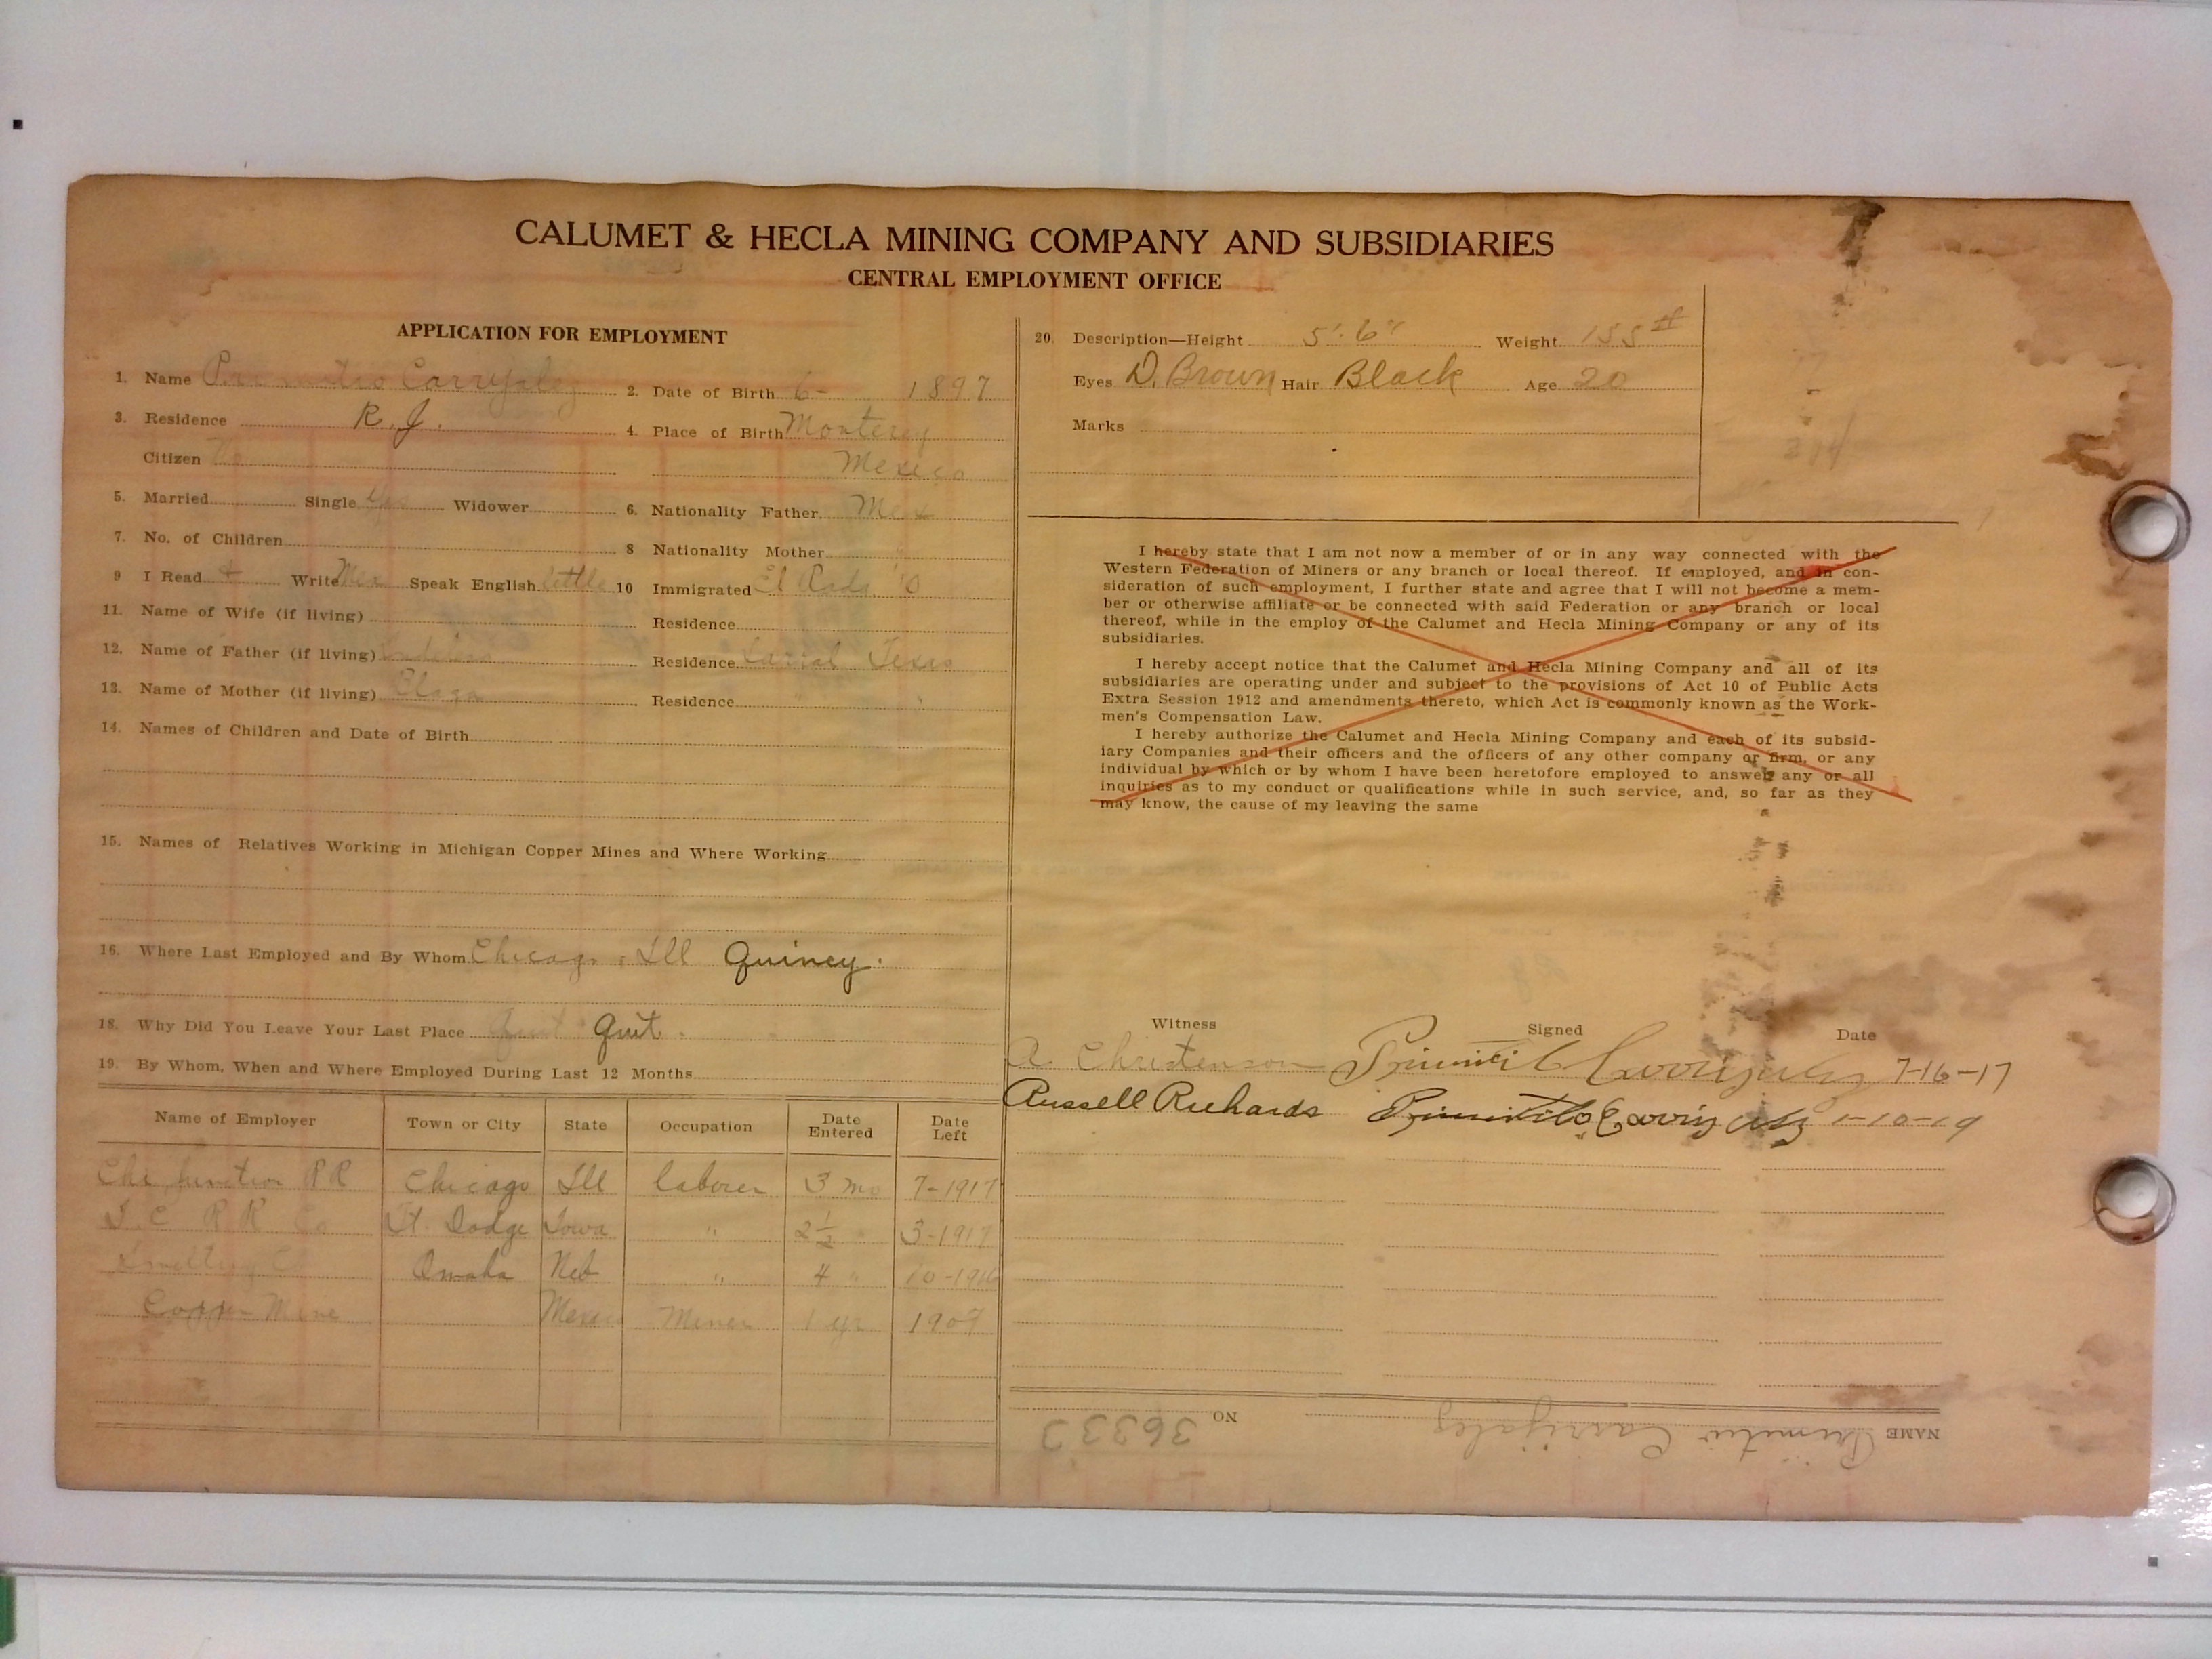 CALUMET & HECLA MINING COMPANY AND SUBSIDIARIES
CENTRAL EMPLOYMENT OFFICE
APPLICATION FOR EMPLOYMENT
1. Name
2. Date of Birth 6- 1897
3. Residence R. J.
4. Place of Birth Monterey
Citizen No
Mexico
5. Married Single Yes Widower
6. Nationality Father Mex
7. No. of Children
8 Nationality Mother "
9 I Read + Write Mex Speak English little
10 Immigrated El '10
11. Name of Wife (if living)
Residence
12. Name of Father (if living)
Residence Texas
13. Name of Mother (if living)
Residence " "
14. Names of Children and Date of Birth
15. Names of Relatives Working in Michigan Copper Mines and Where Working
16. Where Last Employed and By Whom Chicago, Ill Quincy.
18. Why Did You Leave Your Last Place Quit Quit.
19. By Whom, When and Where Employed During Last 12 Months
Name of Employer Town or City State Occupation Date Entered Date Left
Chi Junction RR Chicago Ill laborer 3 mo 7-1917
I. C R R Co Ft. Dodge Iowa " 2½ 3-1917
Smelting Co Omaha Neb " 4 " 10-1916
Copper Mine Mexico Miner 1 yr
20. Description—Height 5'-6" Weight 155 #
Eyes D. Brown Hair Black Age 20
Marks
I hereby state that I am not now a member of or in any way connected with the
Western Federation of Miners or any branch or local thereof. If employed, and in con-
sideration of such employment, I further state and agree that I will not become a mem-
ber or otherwise affiliate or be connected with said Federation or any branch or local
thereof, while in the employ of the Calumet and Hecla Mining Company or any of its
subsidiaries.
I hereby accept notice that the Calumet and Hecla Mining Company and all of its
subsidiaries are operating under and subject to the provisions of Act 10 of Public Acts
Extra Session 1912 and amendments thereto, which Act is commonly known as the Work-
men's Compensation Law.
I hereby authorize the Calumet and Hecla Mining Company and each of its subsid-
iary Companies and their officers and the officers of any other company or firm, or any
individual by which or by whom I have been heretofore employed to answer any or all
inquiries as to my conduct or qualifications while in such service, and, so far as they
may know, the cause of my leaving the same
Witness Signed Date
A. Christenson 7-16-17
Russell Richards 1-10-19
NAME Primitivo Carrijales NO 36333